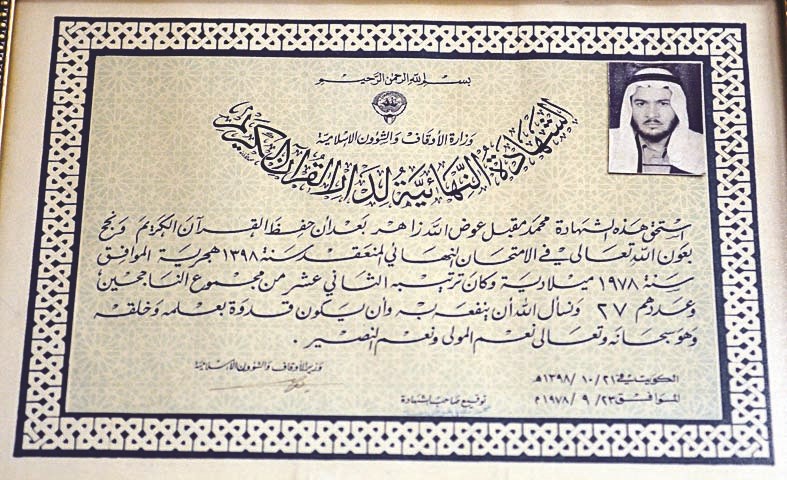 بسم الله الرحمن الرحيم
وزارة الأوقاف والشؤون الإسلامية
الشهادة النهائية لدار القرآن الكريم
استحق هذه الشهادة محمد مقبل عوض الله زاهر بعد أن حفظ القرآن الكريم ونجح
بعون الله تعالى في الامتحان النهائي المنعقد سنة ١٣٩٨ هجرية الموافق
سنة ١٩٧٨ ميلادية وكان ترتيبه الثاني عشر من مجموع الناجحين
وعددهم ٢٧ ونسأل الله أن ينفعه به وأن يكون قدوة بعلمه وخلقه
وهو سبحانه وتعالى نعم المولى ونعم النصير .
الكويت في ٢١ / ١٠ / ١٣٩٨هـ
الموافق ٢٣ / ٩ / ١٩٧٨م
توقيع صاحب الشهادة
وزير الأوقاف والشؤون الإسلامية